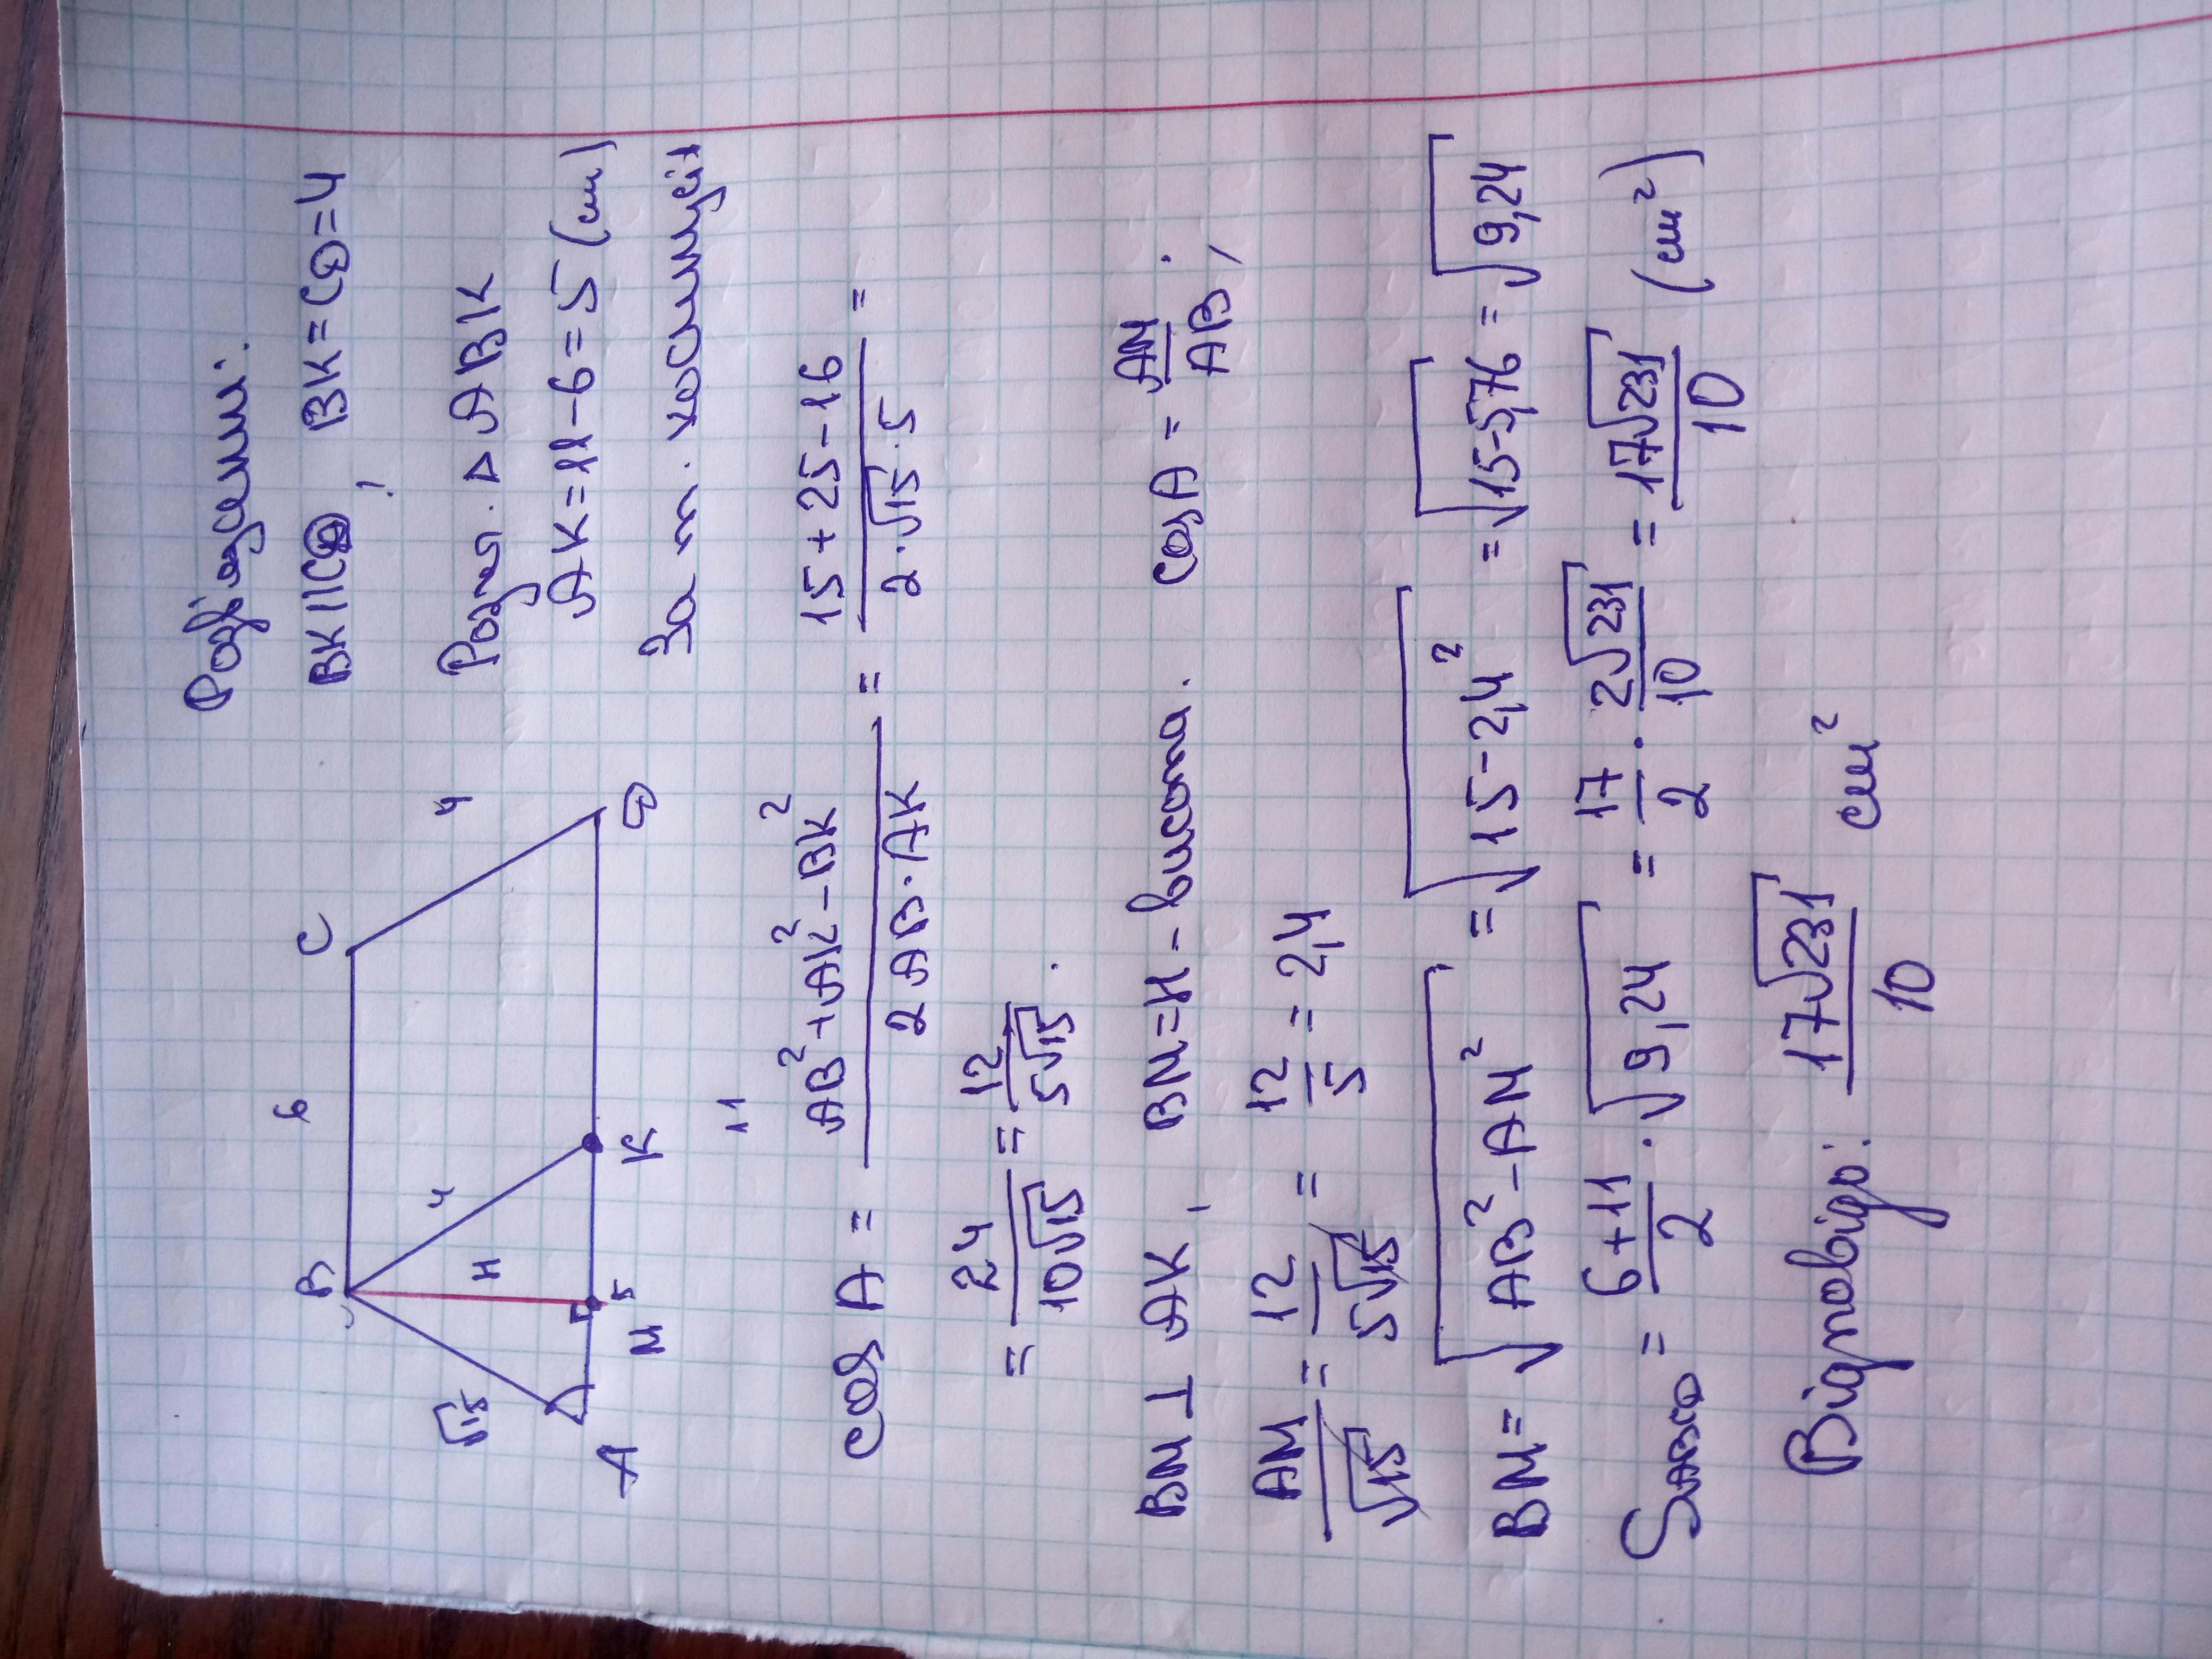 Розв'язання:
B 6 C
BK||CD, BK=CD=4
√15 H 4 4
Розгл. △ ABK
AK=11-6=5 (см)
A M 5 K D
За т. косинусів
11
cos A = (AB²+AK²-BK²)/(2AB·AK) = (15+25-16)/(2·√15·5) =
= 24/(10√15) = 12/(5√15).
BM ⊥ AK, BM=H - висота. cos A = AM/AB;
AM/√15 = 12/(5√15) = 12/5 = 2,4
BM= √(AB²-AM²) = √(15-2,4²) = √(15-5,76) = √9,24
S ABCD = (6+11)/2 · √9,24 = 17/2 · 2√231/10 = 17√231/10 (см²)
Відповідь: 17√231/10 см²